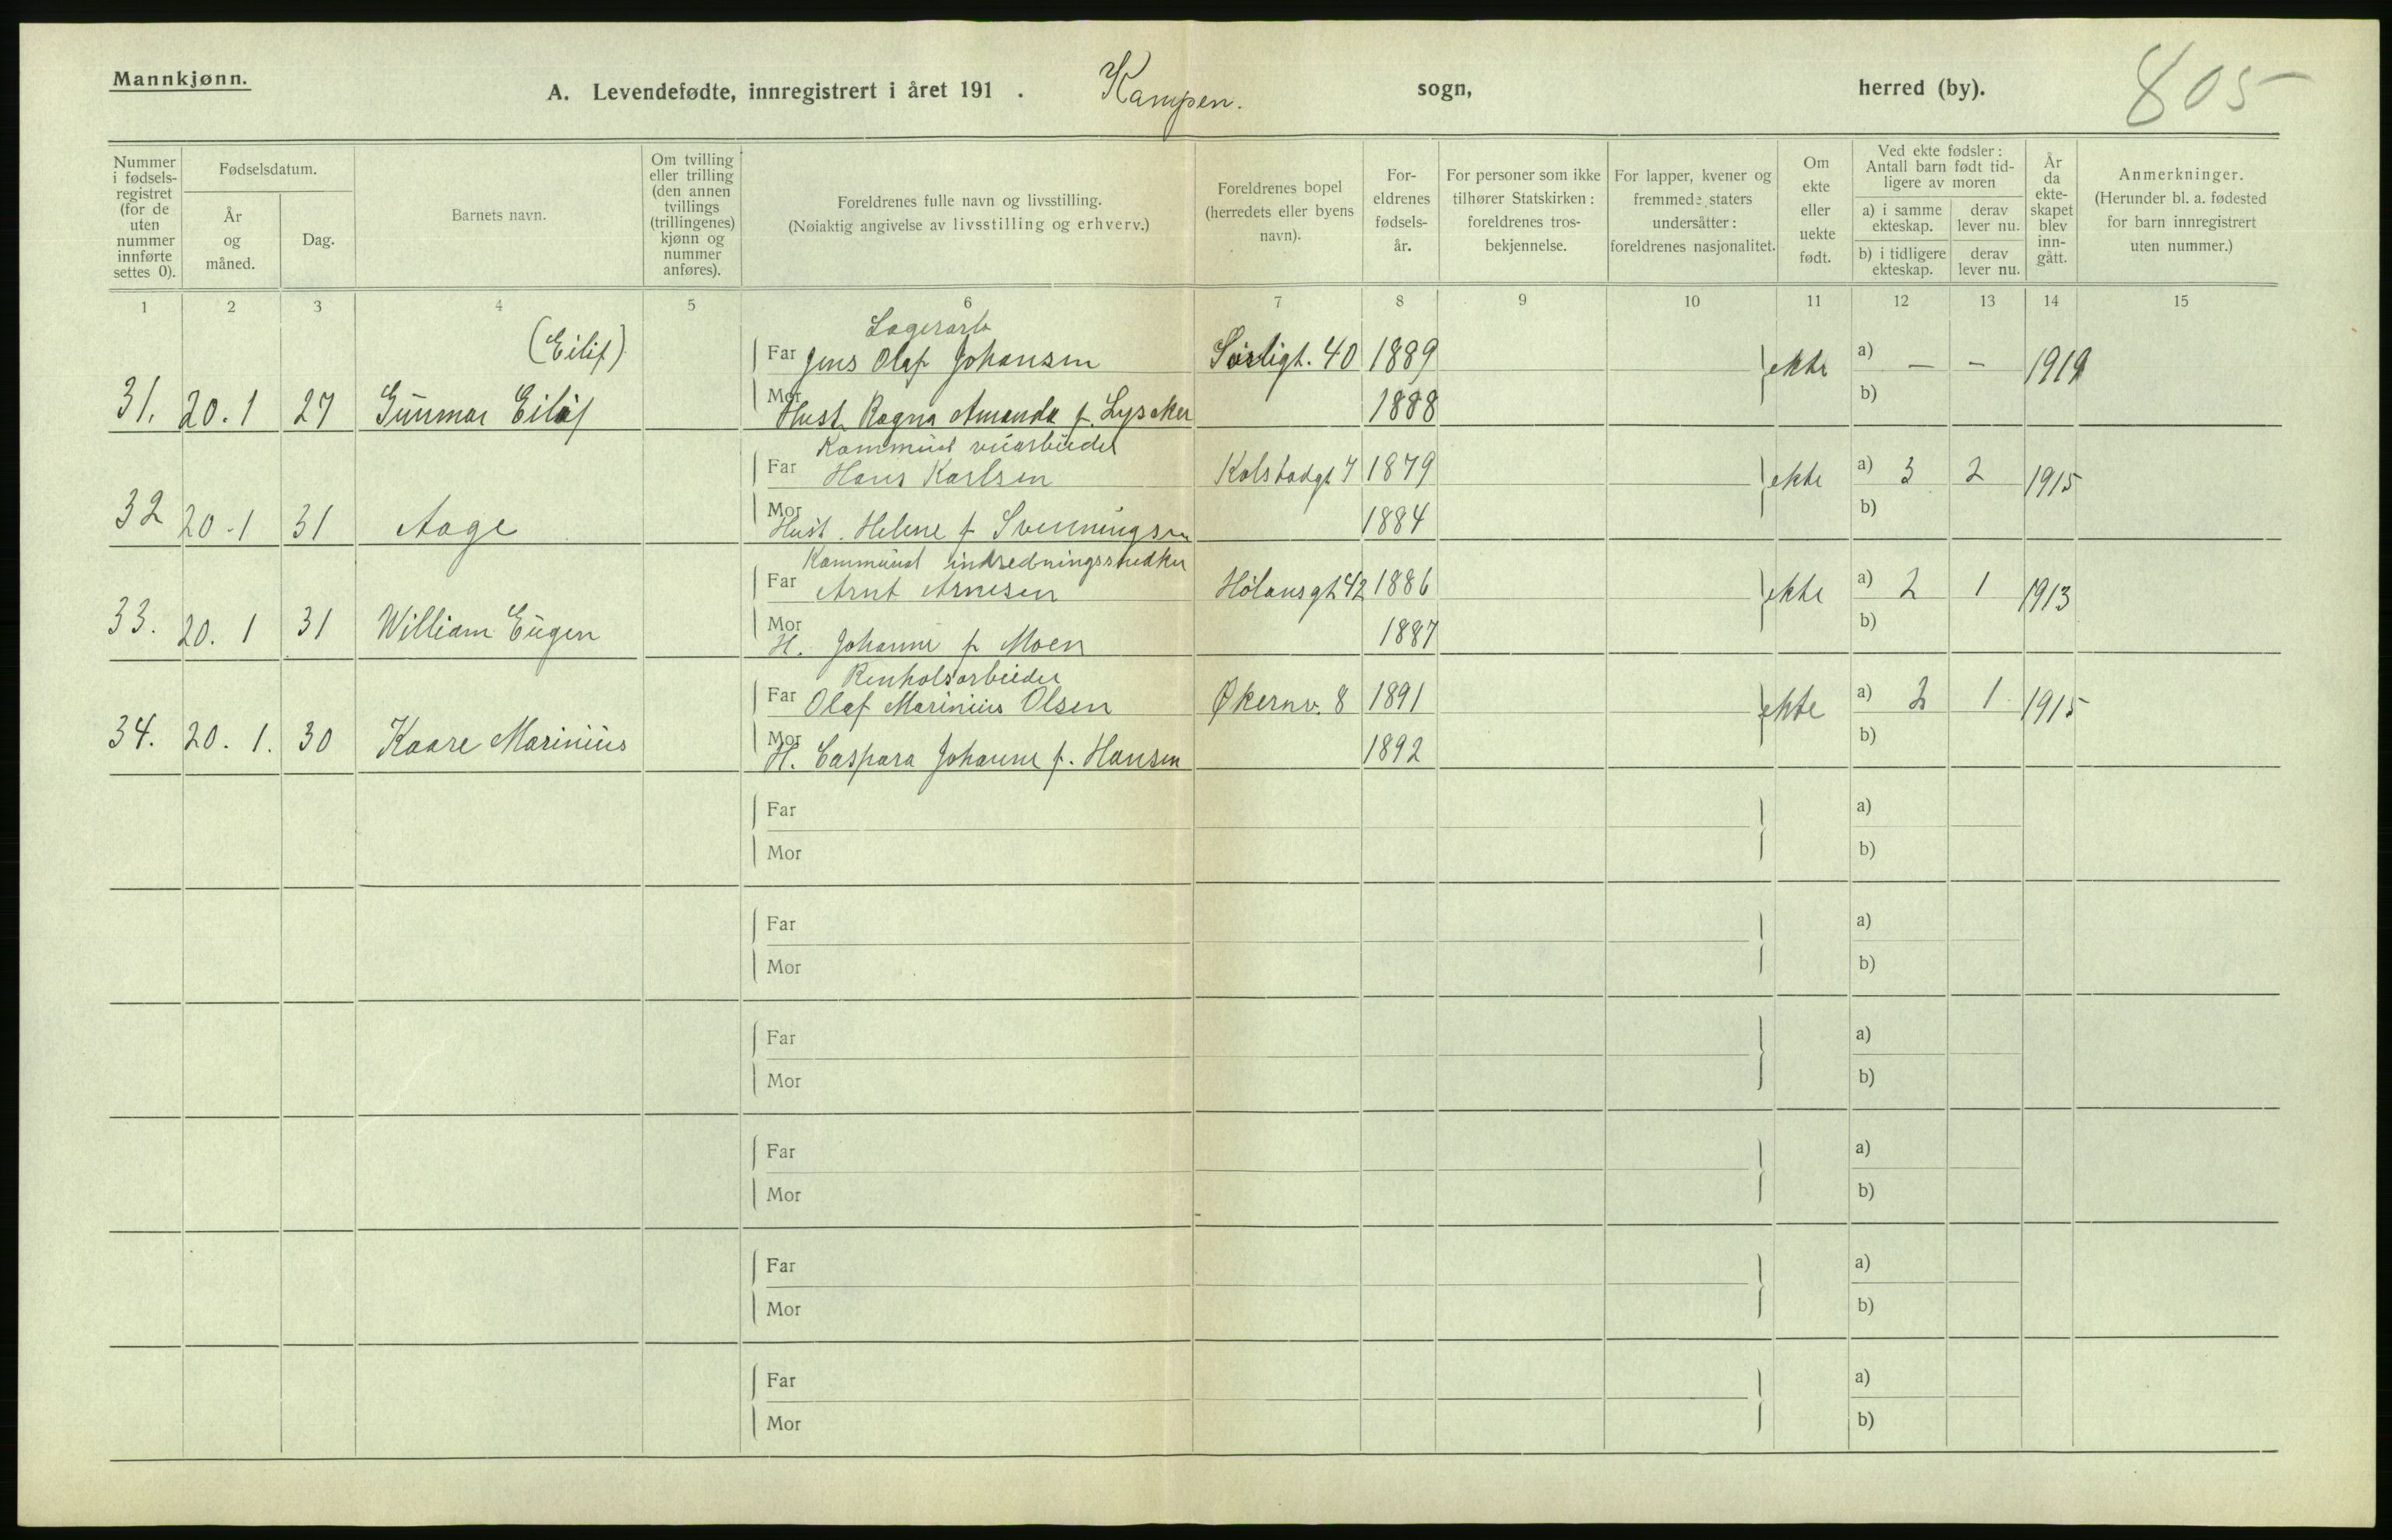 Mannkjønn.
A. Levendefødte, innregistrert i året 191 . Kampen. sogn, herred (by). 805
Nummer i fødselsregistret (for de uten nummer innførte settes 0).
Fødselsdatum.
År og måned.
Dag.
Barnets navn.
Om tvilling eller trilling (den annen tvillings (trillingenes) kjønn og nummer anføres).
Foreldrenes fulle navn og livsstilling.
(Nøiaktig angivelse av livsstilling og erhverv.)
Foreldrenes bopel (herredets eller byens navn).
For-eldrenes fødsels-år.
For personer som ikke tilhører Statskirken: foreldrenes tros-bekjennelse.
For lapper, kvener og fremmede staters undersåtter: foreldrenes nasjonalitet.
Om ekte eller uekte født.
Ved ekte fødsler: Antall barn født tid-ligere av moren
a) i samme ekteskap.
derav lever nu.
b) i tidligere ekteskap.
derav lever nu.
År da ekte-skapet blev inn-gått.
Anmerkninger.
(Herunder bl. a. fødested for barn innregistrert uten nummer.)
1 2 3 4 5 6 7 8 9 10 11 12 13 14 15
(Eilif) Lagerarb
Far Jens Olaf Johansen Sørligt. 40 1889 ekte a) — — 1919
31. 20.1 27 Gunnar Eilif Mor Hust. Ragna Amanda f. Lysaker 1888 b)
Far Hans Karlsen Kolstadgt 7 1879 ekte a) 3 2 1915
32 20-1 31 Aage Mor Hust. Helene f Svenningsen 1884 b)
Kommunal indredningssnedker
Far Arnt Arnesen Hølansgt 42 1886 ekte a) 2 1 1913
33. 20. 1 31 William Eugen Mor H. Johanne f Moen 1887 b)
Renholsarbeider
Far Olaf Marinius Olsen Økernv. 8 1891 ekte a) 2 1. 1915
34. 20. 1. 30 Kaare Marinius Mor H. Caspara Johanne f. Hansen 1892 b)
Far a)
Mor b)
Far a)
Mor b)
Far a)
Mor b)
Far a)
Mor b)
Far a)
Mor b)
Far a)
Mor b)